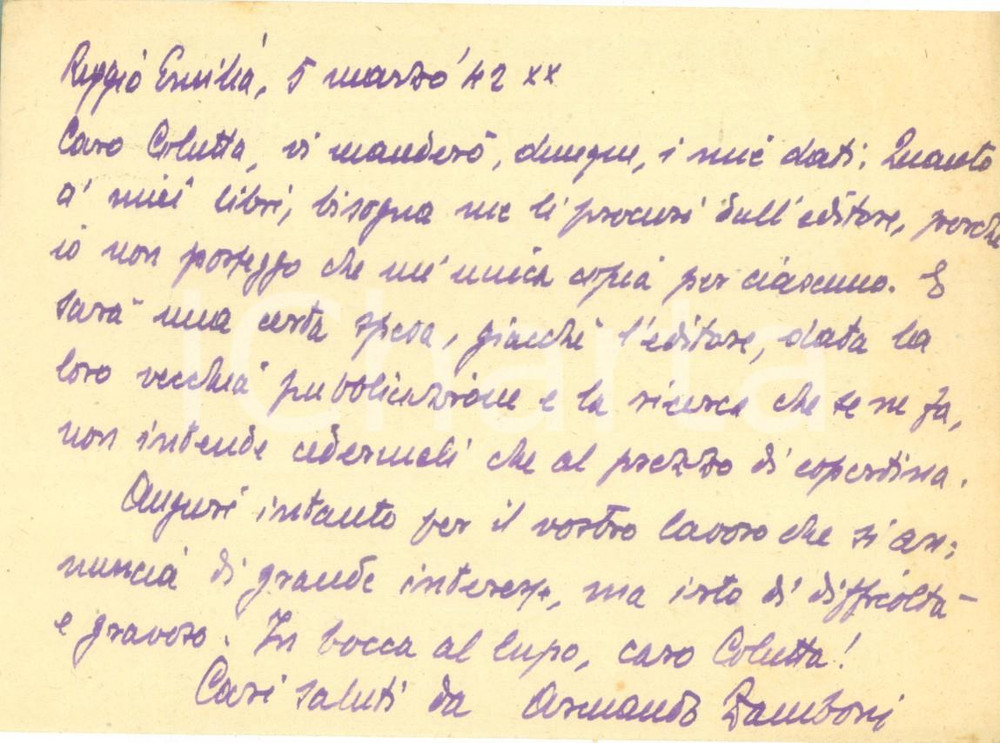 Reggio Emilia, 5 marzo '42 XX
Caro Colutta, vi manderò, dunque, i miei dati. Quanto
a' miei libri, bisogna me li procuri dall'editore, perché
io non posseggo che un'unica copia per ciascuno. E
sarà una certa spesa, giacché l'editore, data la
loro vecchia pubblicazione e la ricerca che se ne fa,
non intende cedermeli che al prezzo di copertina.
Auguri intanto per il vostro lavoro che si an-
nuncia di grande interesse, ma irto di difficoltà
e gravoso. In bocca al lupo, caro Colutta!
Cari saluti da Armando Zamboni
iCharta